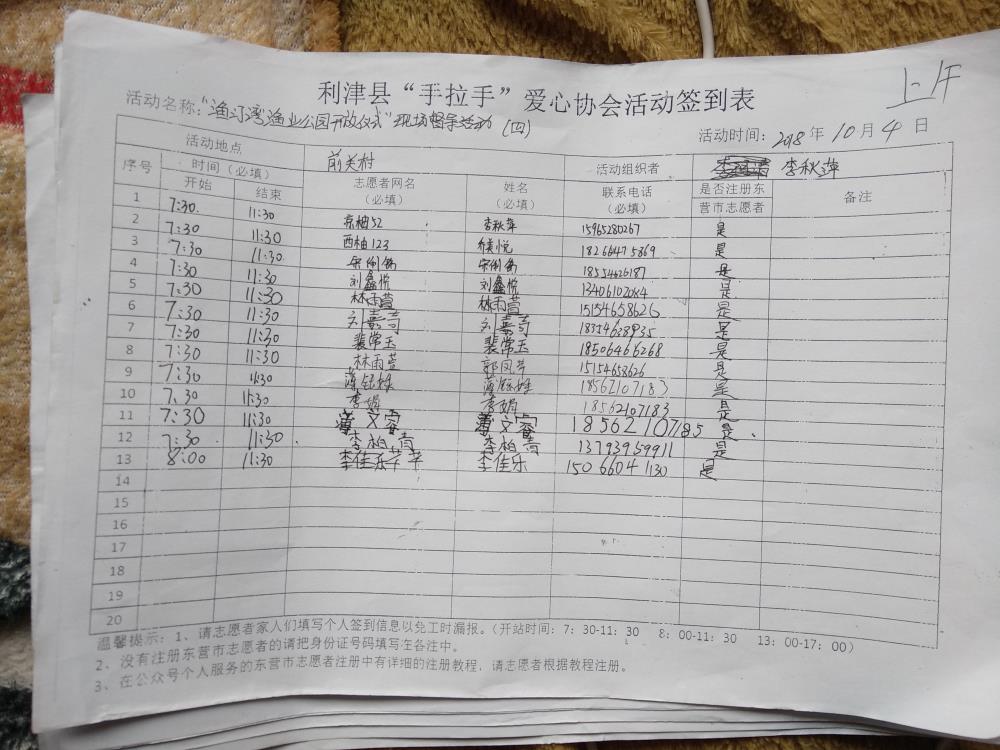 上午
利津县“手拉手”爱心协会活动签到表
活动名称：“渔汀湾渔业公园开放仪式”现场督导活动（四） 活动时间：2018年10月4日
活动地点 前关村 活动组织者 李秋萍
序号 时间（必填） 志愿者网名（必填） 姓名（必填） 联系电话（必填） 是否注册东营市志愿者 备注
开始 结束
1 7:30 11:30 京柚52 李秋萍 15965280267 是
2 7:30 11:30 西柚123 悦 18266475869 是
3 7:30 11:30 宋 宋 18554626187 是
4 7:30 11:30 刘鑫悦 刘鑫悦 是
5 7:30 11:30 林雨萱 林雨萱 15154658626 是
6 7:30 11:30 刘嘉 刘嘉 是
7 7:30 11:30 裴常玉 裴常玉 18506466268 是
8 7:30 11:30 林雨萱 郭凤芹 15154658626 是
9 7:30 11:30 18562107183 是
10 7:30 11:30 李娟 李娟 18562107183 是
11 7:30 11:30 薄文睿 薄文睿 18562107185 是
12 7:30 11:30 李柏青 李柏青 13793959911 是
13 8:00 11:30 李佳乐苹苹 李佳乐 15066041130 是
14
15
16
17
18
19
20
温馨提示：1、请志愿者家人们填写个人签到信息以免工时漏报。（开站时间：7：30-11：30 8：00-11：30 13：00-17：00）
2、没有注册东营市志愿者的请把身份证号码填写在备注中。
3、在公众号个人服务的东营市志愿者注册中有详细的注册教程，请志愿者根据教程注册。